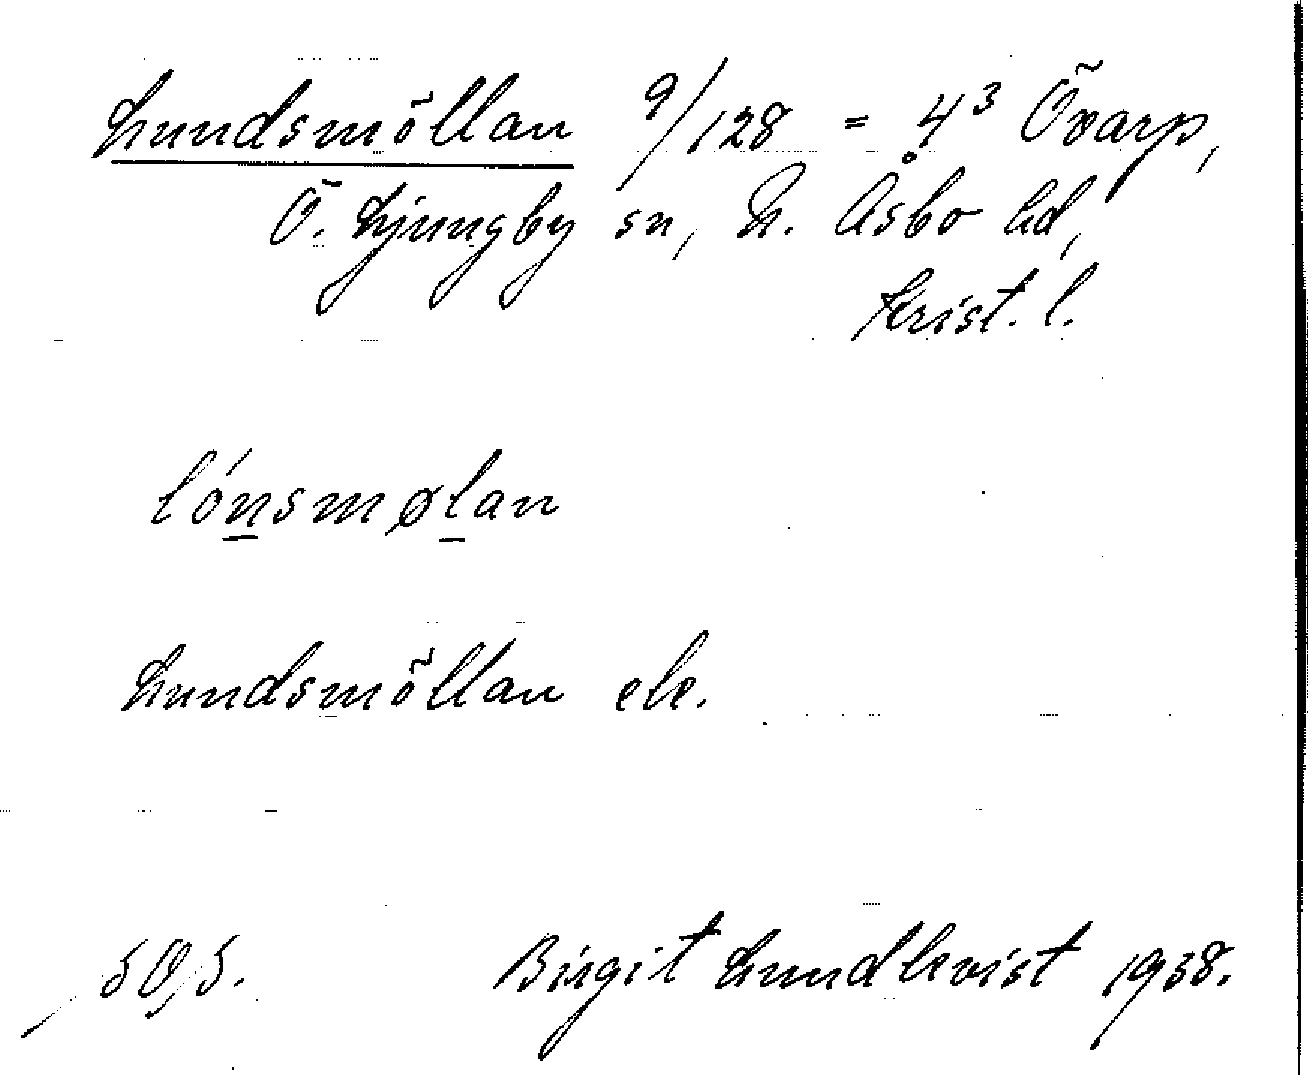 Lundsmöllan 9/128 = 4³ Övarp,
Ö. Ljungby sn, N. Åsbo hd,
Krist. l.
lónsmølan
Lundsmöllan ek.
Birgit Lundkvist 1938.